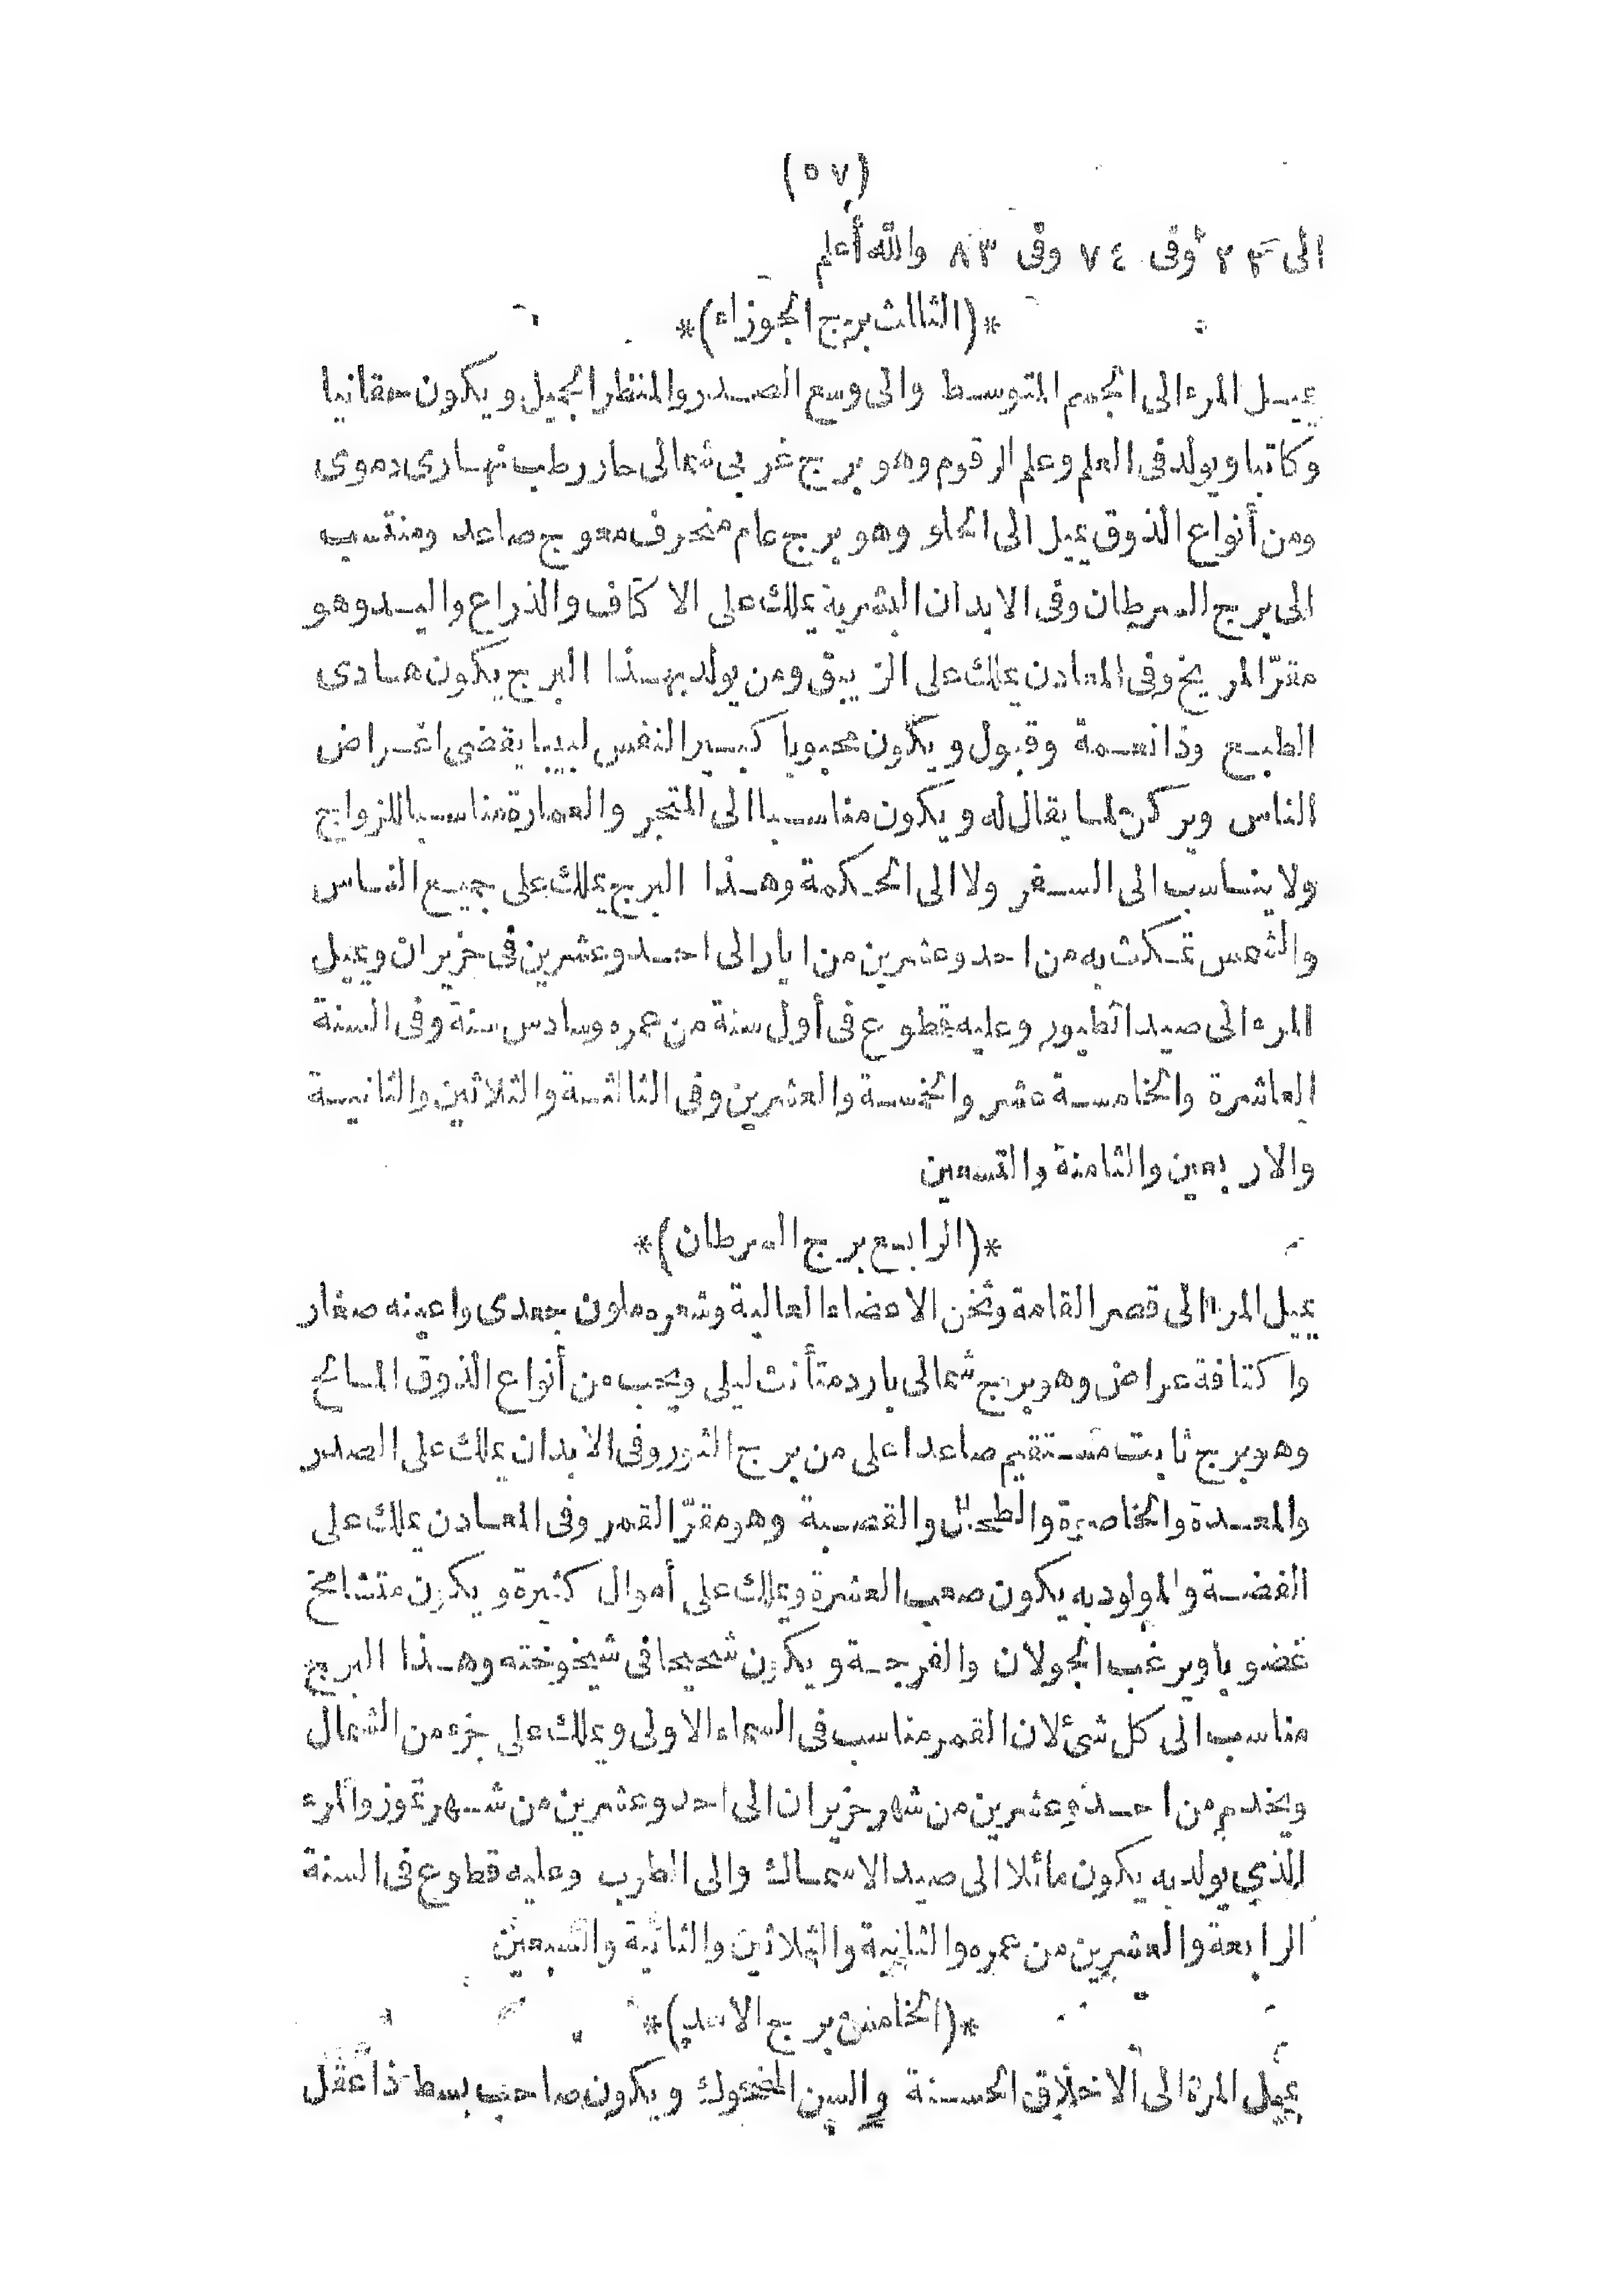 (٥٧)
الى ٢٣ وفى ٧٤ وفى ٨٣ والله أعلم
*(الثالث برج الجوزاء)*
يميل المرء الى الجسم المتوسط والى وسع الصدر والمنظر الجميل ويكون حقانيا
وكاتبا ويولد فى العلم وعلم الرقوم وهو برج غربى شمالى حار رطب نهارى دموى
ومن أنواع الذوق يميل الى الحلو وهو برج عام منحرف معوج صاعد ومنتسب
الى برج السرطان وفى الابدان البشرية يملك على الاكتاف والذراع واليد وهو
مقرّ المريخ وفى المعادن يملك على الزيبق ومن يولد بهذا البرج يكون هادى
الطبع وذا نعمة وقبول ويكون محبوبا كبير النفس لبيبا يقضى اغراض
الناس ويركن لما يقال له ويكون مناسبا الى المتجر والعمارة مناسبا للزواج
ولا يناسب الى السفر ولا الى الحكمة وهذا البرج يملك على جميع الناس
والشمس تمكث به من احد وعشرين من ايار الى احد وعشرين فى حزيران ويميل
المرء الى صيد الطيور وعليه قطوع فى أول سنة من عمره وسادس سنة وفى السنة
العاشرة والخامسة عشر والخمسة والعشرين وفى الثالثة والثلاثين والثانية
والاربعين والثامنة والتسعين
*(الرابع برج السرطان)*
يميل المرء الى قصر القامة وثخن الاعضاء العالية وشعره ملون جعدى واعينه صغار
واكتافة عراض وهو برج شمالى بارد متأنث ليلى ويحب من أنواع الذوق المالح
وهو برج ثابت مستقيم صاعد اعلى من برج الثور وفى الابدان يملك على الصدر
والمعدة والخاصرة والطحال والقصبة وهو مقرّ القمر وفى المعادن يملك على
الفضة والمولود به يكون صعب العشرة ويملك على أموال كثيرة ويكون متشامخ
غضوبا ويرغب الجولان والفرجة ويكون شحيحا فى شيخوخته وهذا البرج
مناسب الى كل شئ لان القمر مناسب فى السماء الاولى ويملك على جزء من الشمال
ويخدم من احد وعشرين من شهر حزيران الى احد وعشرين من شهر تموز والمرء
الذى يولد به يكون مائلا الى صيد الاسماك والى الطرب وعليه قطوع فى السنة
الرابعة والعشرين من عمره والثانية والثلاثين والثانية والسبعين
*(الخامس برج الاسد)*
يميل المرء الى الاخلاق الحسنة والسن الضحوك ويكون صاحب بسط ذا عقل